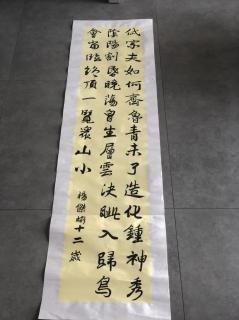 岱宗夫如何齊魯青未了造化鍾神秀
陰陽割昏曉蕩胷生層雲決眦入歸鳥
會當臨絕頂一覽眾山小
楊傑十二歲